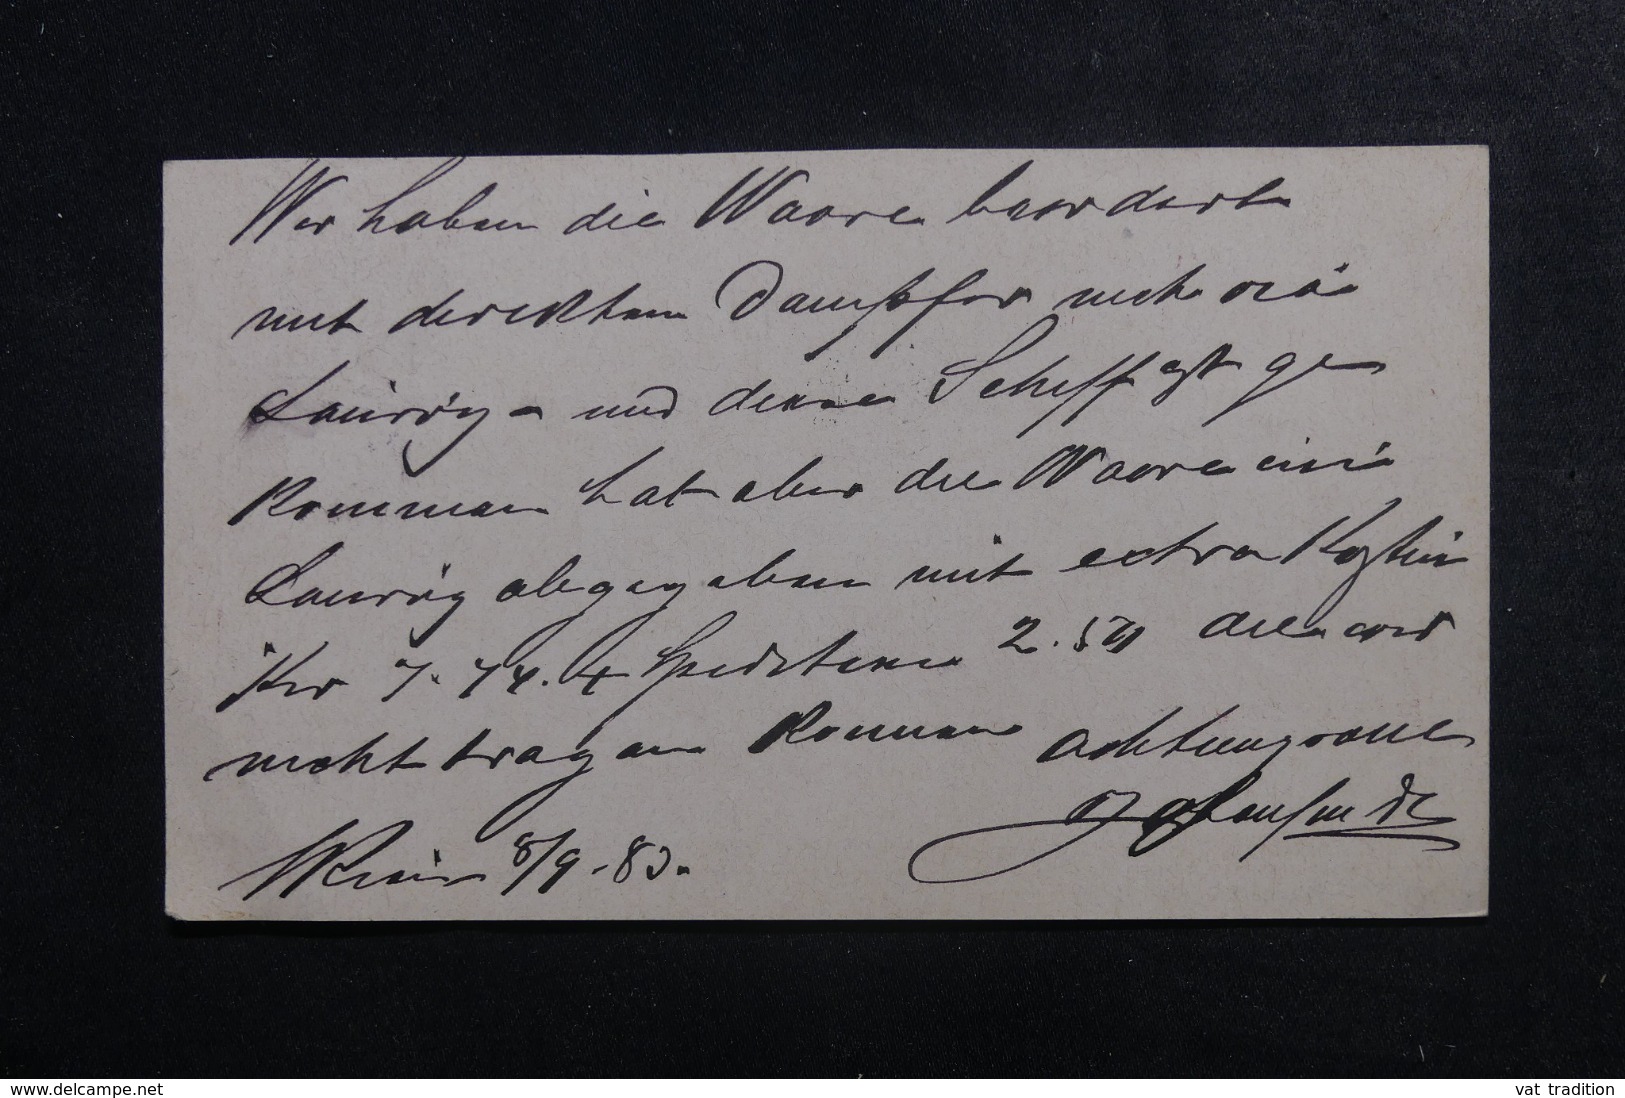 Wir haben die Waare beordert
mit direktem Dampfer nicht via
und dieses Schiff ist ge
kommen hat aber die Waare in
abgegeben mit extra Kosten
7.74. 4 Spediteur 2.50 die wir
nicht tragen können achtungsvoll
Wien 8/9.83.
www.delcampe.net
vat_tradition